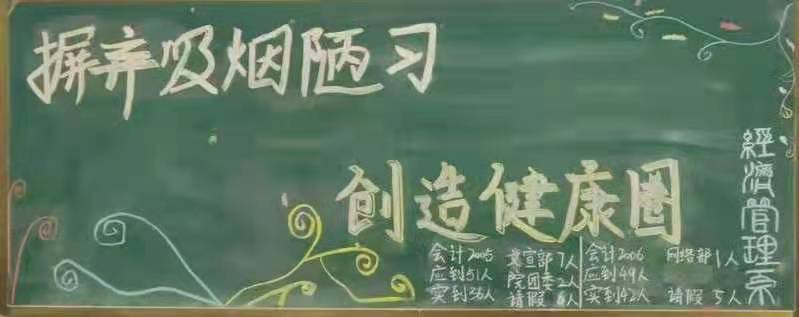 摒弃吸烟陋习
创造健康圈
經濟管理系
会计2005 党宣部7人 会计2006 网络部1人
应到51人 院团委2人 应到49人
实到36人 请假6人 实到42人 请假5人